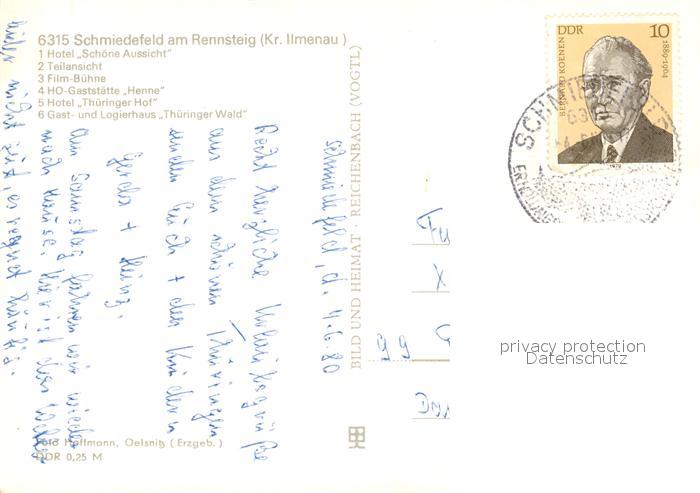 6315 Schmiedefeld am Rennsteig (Kr. Ilmenau)
1 Hotel „Schöne Aussicht"
2 Teilansicht
3 Film-Bühne
4 HO-Gaststätte „Henne"
5 Hotel „Thüringer Hof"
6 Gast- und Logierhaus „Thüringer Wald"
Schmiedefeld, d. 4.6.80
Recht herzliche Urlaubsgrüße
aus dem schönen Thüringen
senden Euch + den Kindern
Gerda + Heinz.
Am Sonnstag fahren wir wieder
nach Hause. Hier ist das Wetter
leider nicht
es regnet häufig.
Foto Hoffmann, Oelsnitz (Erzgeb.)
DDR 0,25 M
BILD UND HEIMAT · REICHENBACH (VOGTL)
DDR 10
BERNARD KOENEN
1889-1964
1979
SCHMIE
privacy protection
Datenschutz